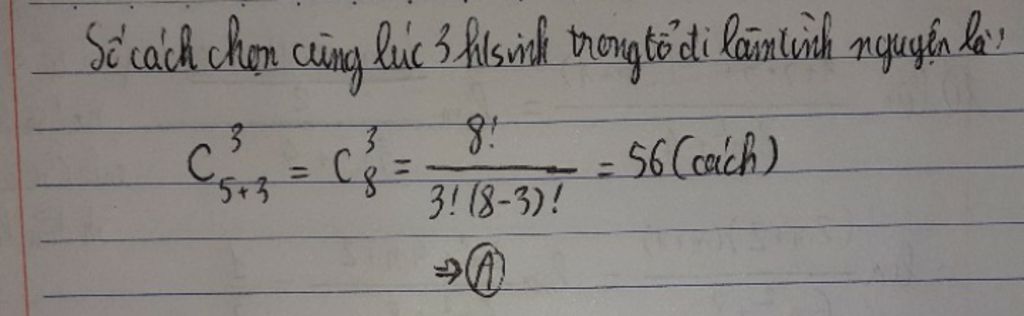 Số cách chọn cùng lúc 3 h/sinh trong tổ đi làm tình nguyện là:
C³₅₊₃ = C³₈ = 8! / 3!(8-3)! = 56 (cách)
⇒ Ⓐ